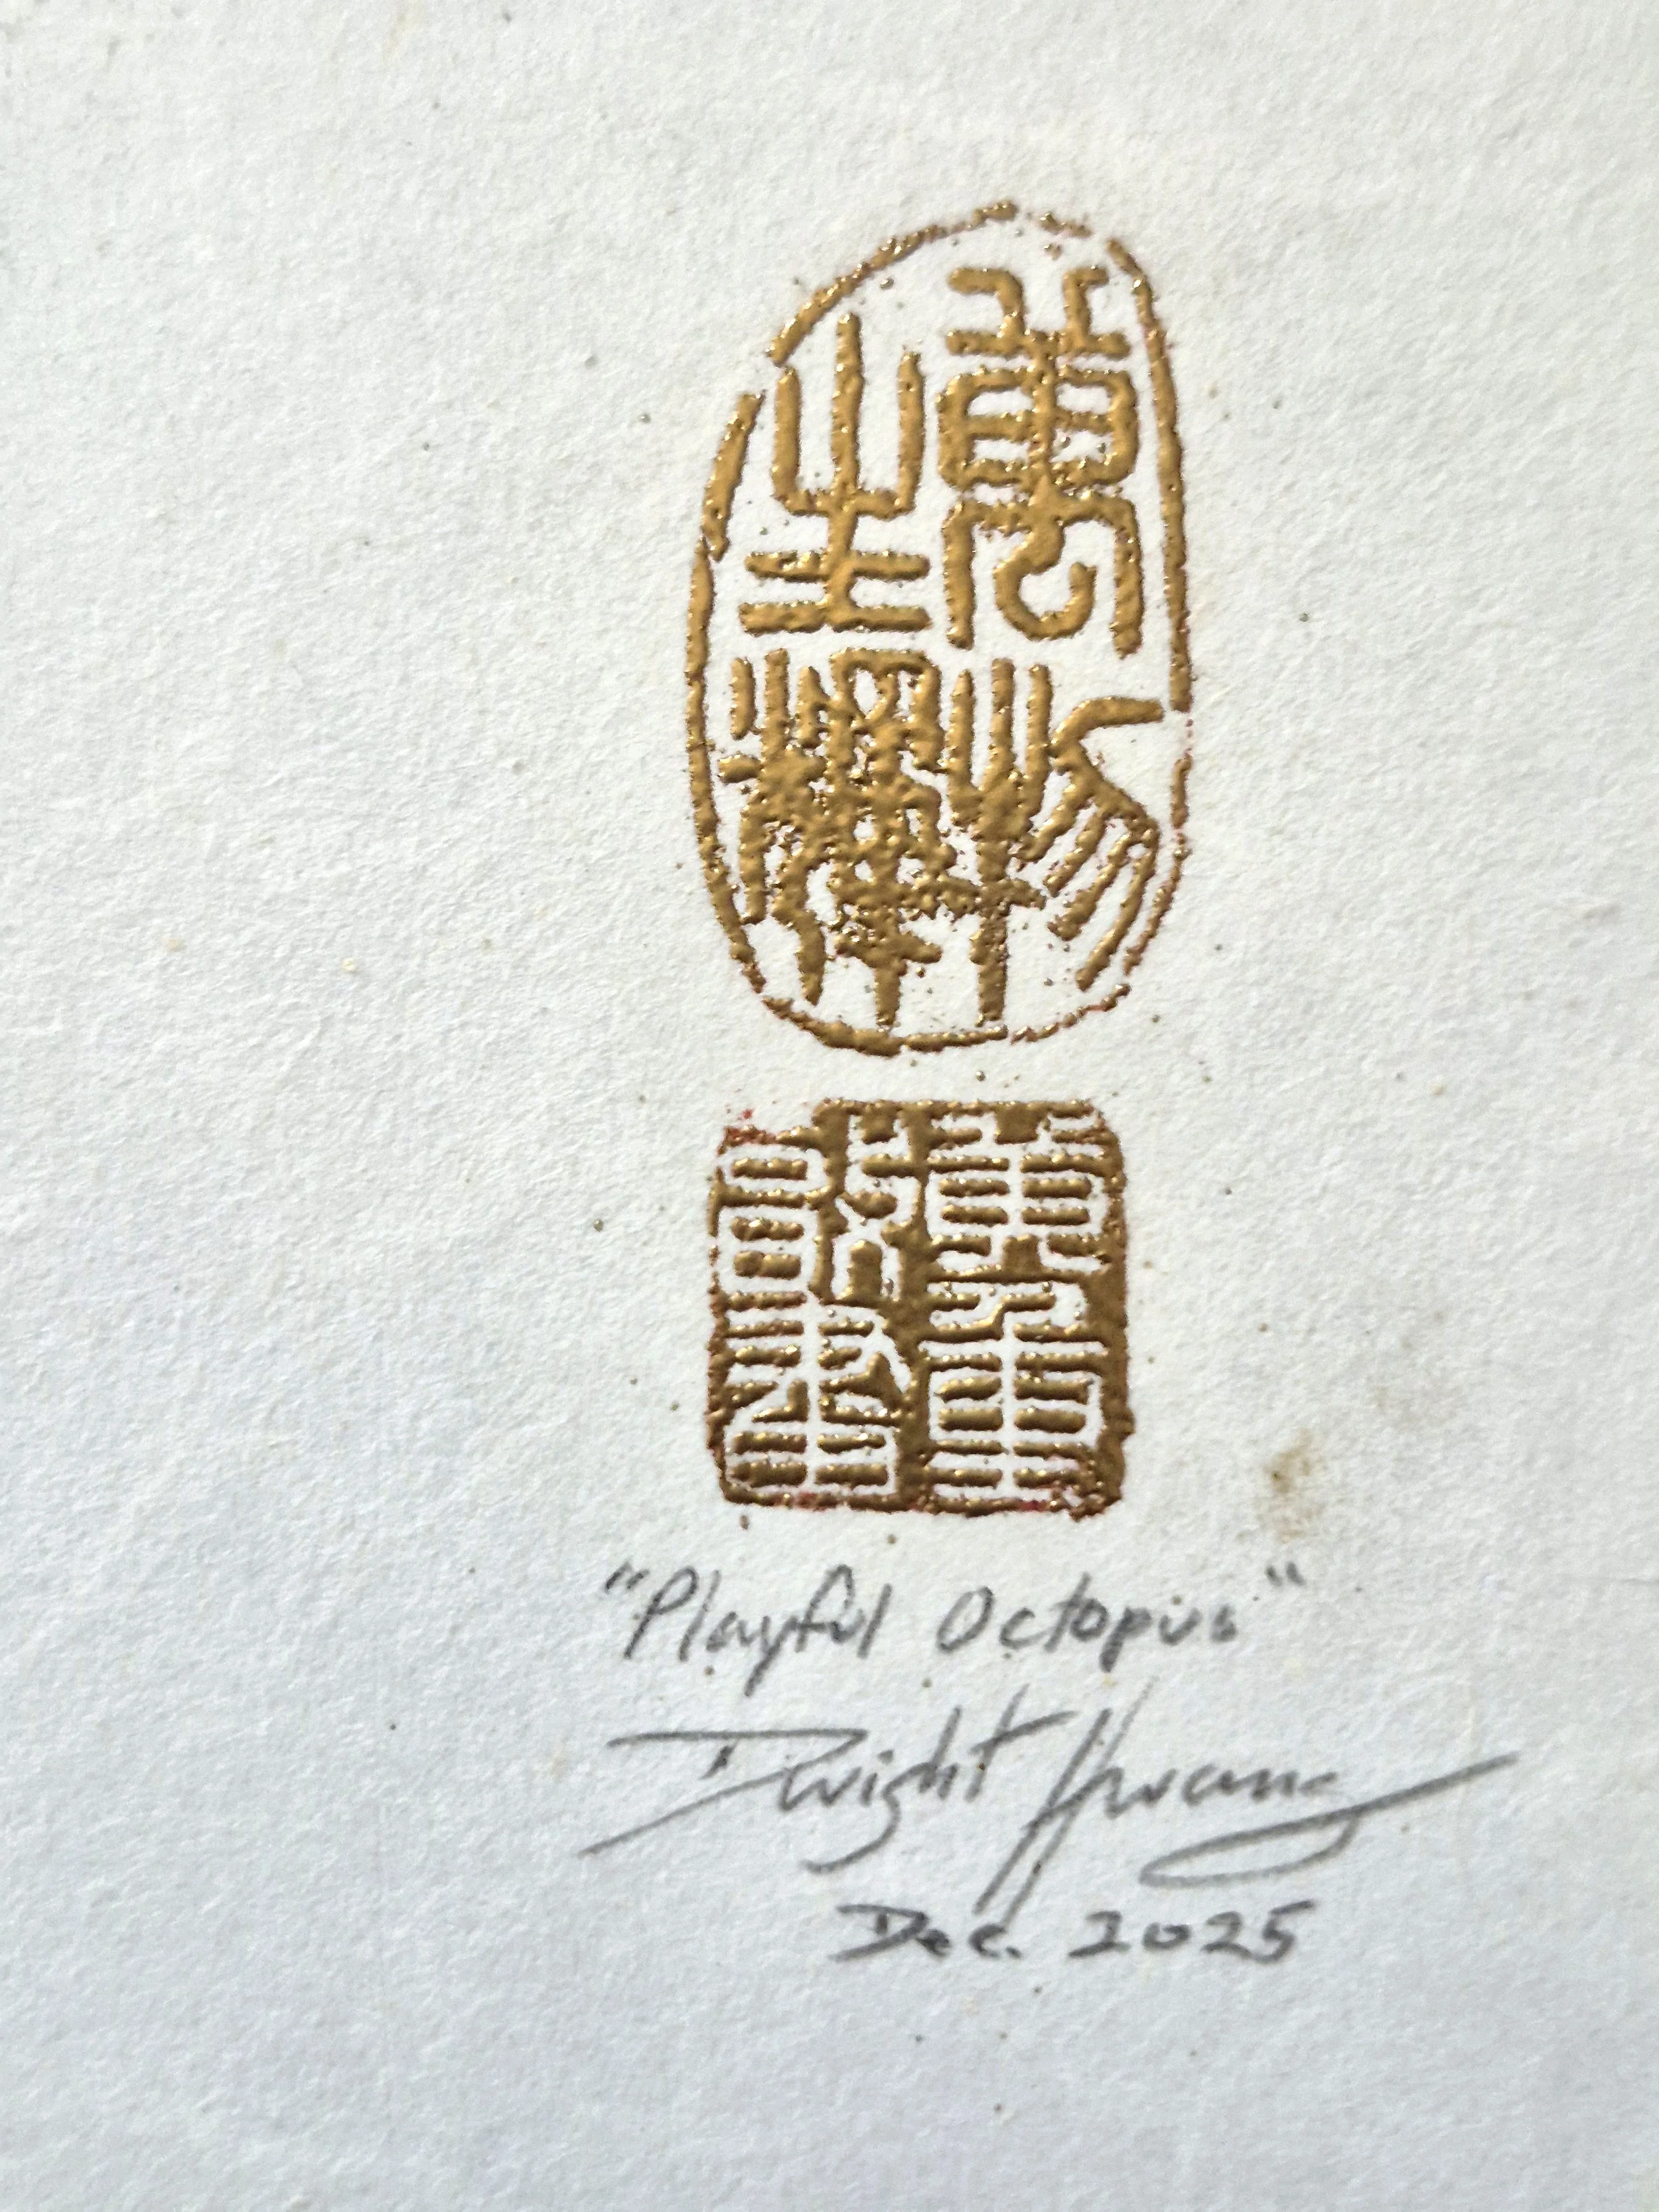 萬物
生輝
"Playful Octopus"
Dwight Hwang
Dec. 2025